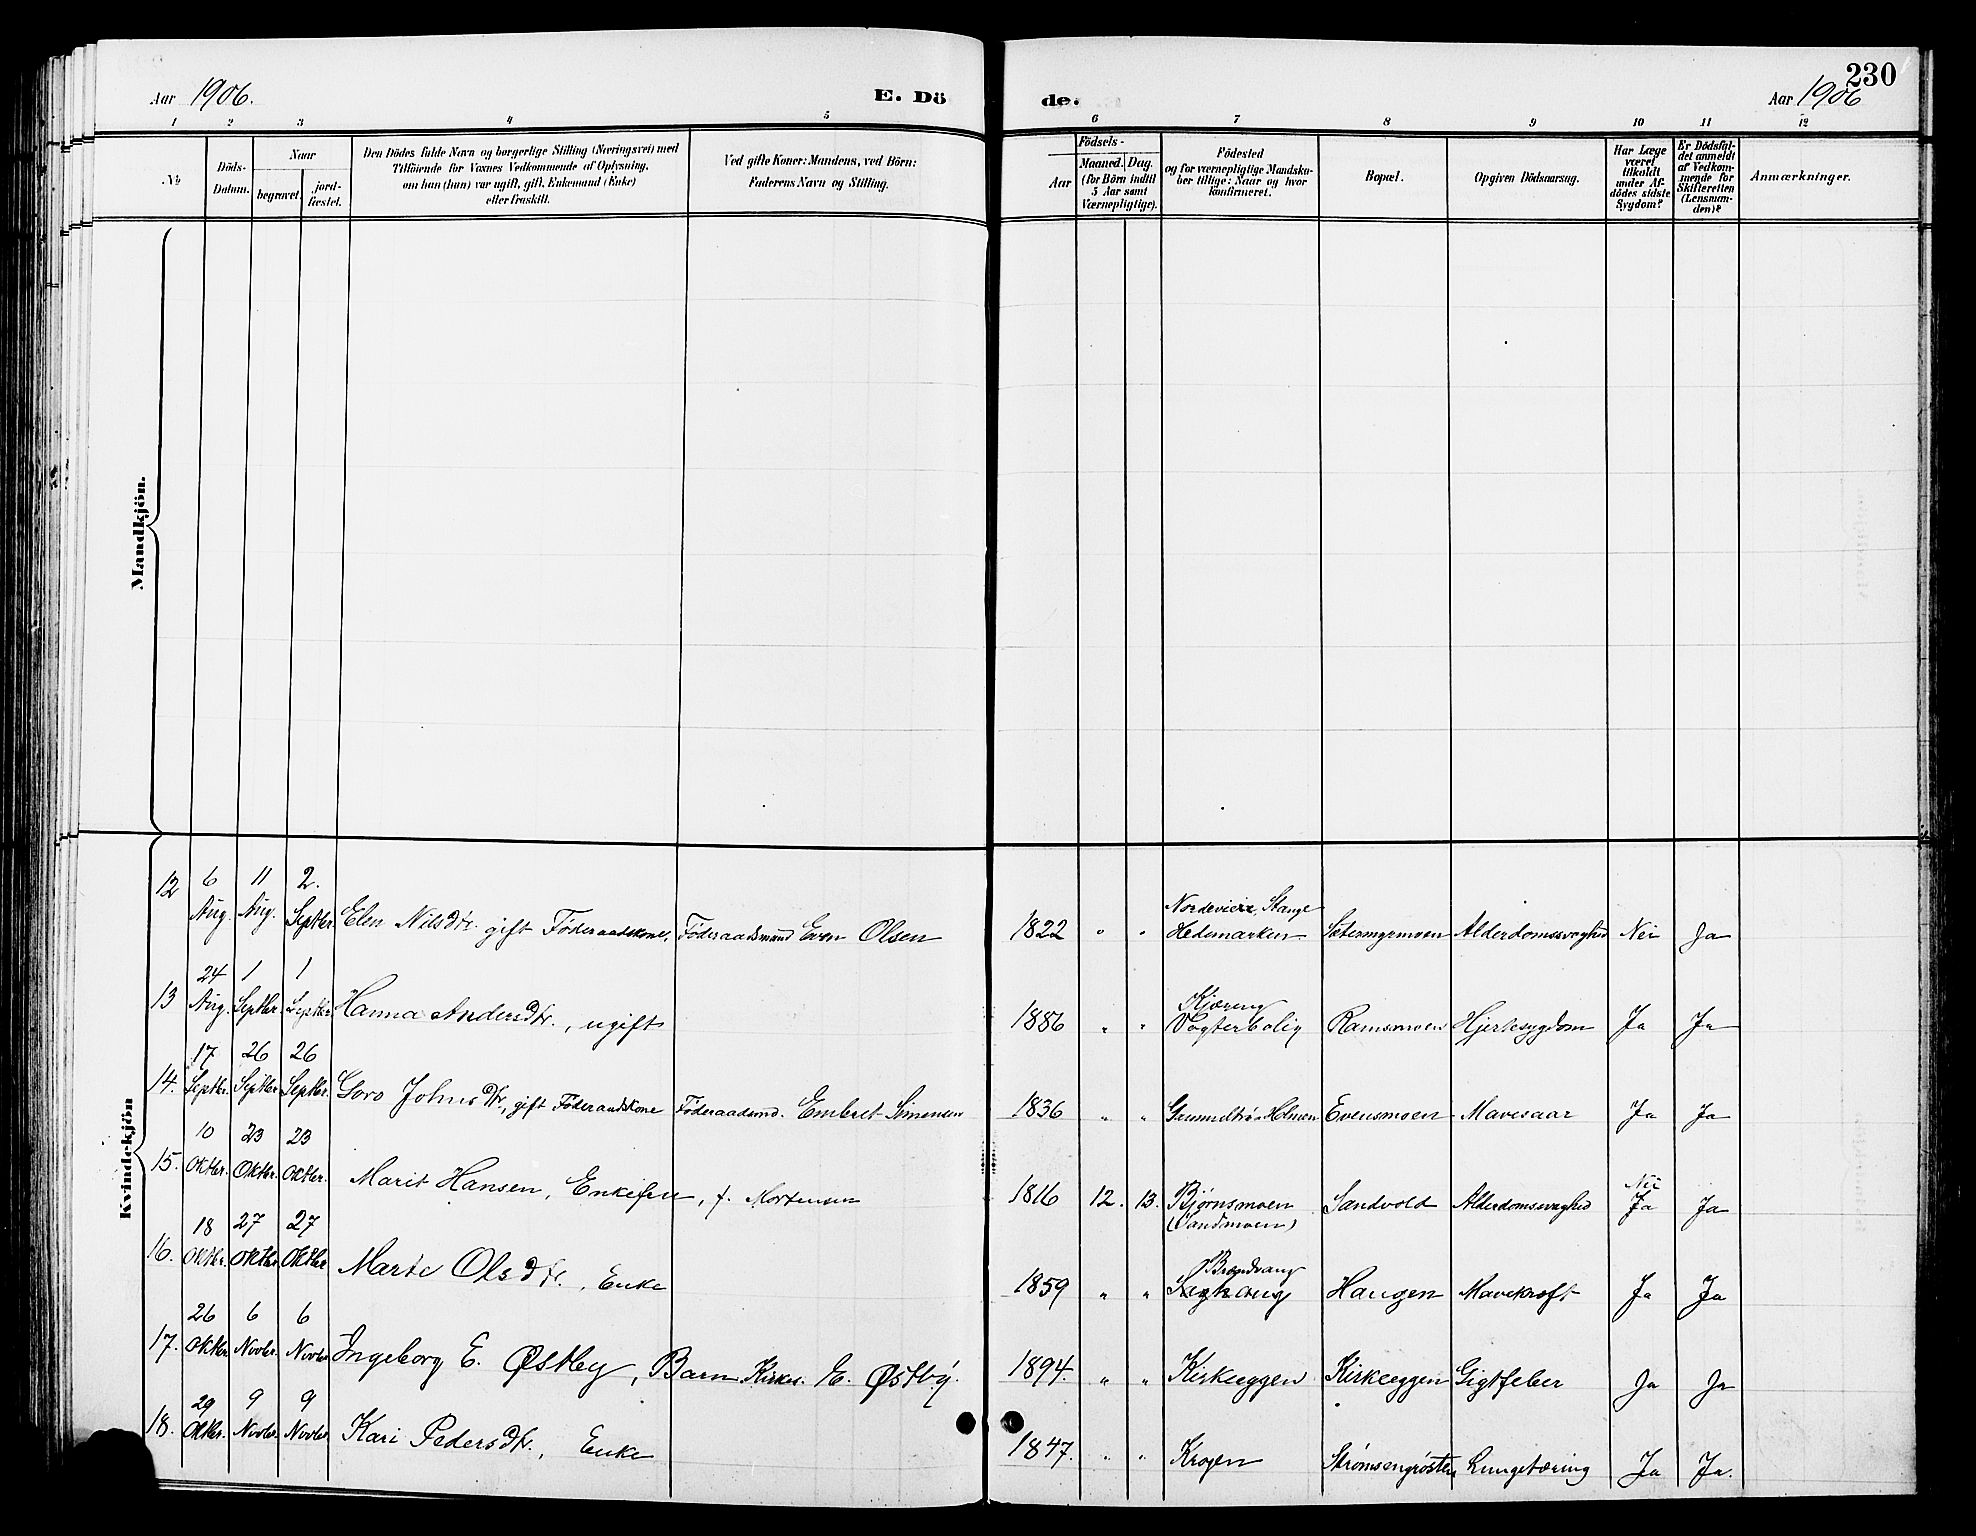 230
Aar 1906. E. Dö de. Aar 1906
1 2 3 4 5 6 7 8 9 10 11 12
No
Döds-Datum.
Naar
begravet. jord-fæstet.
Den Dödes fulde Navn og borgerlige Stilling (Næringsvei) med
Tilföiende for Voxnes Vedkommende af Oplysning,
om han (hun) var ugift, gift, Enkemand (Enke)
eller fraskilt.
Ved gifte Koner: Mandens, ved Börn:
Faderens Navn og Stilling.
Födsels-
Aar
Maaned. Dag.
(for Börn indtil
5 Aar samt
Værnepligtige).
Födested
og for værnepligtige Mandska-
ber tillige: Naar og hvor
konfirmeret.
Bopæl.
Opgiven Dödsaarsag.
Har Læge
været
tilkaldt
under Af-
dödes sidste
Sygdom?
Er Dödsfal-
det anmeldt
af Vedkom-
mende for
Skifteretten
(Lensman-
den)?
Anmærkninger.
Mandkjön.
Kvindekjön
12 6 Aug. 11 Aug. 2. Septbr. Elen Nilsdtr. gift Føderaadskone, Føderaadsmand Even Olsen 1822 " " Stange Hedemarken. Sætermyrmoen Alderdomssvaghed Nei Ja
13 24 Aug. 1 Septbr. 1 Septbr. Hanna Andersdtr., ugift 1886 " " Kjæreng Vogterbolig Ramsmoen Hjertesygdom Ja Ja
14. 17 Septbr. 26 Septbr. 26 Septbr. Goro Johnsdtr., gift Føderaadskone Føderaadsmd. Embret Simensen 1836 " " Holmen Evensmoen Mavesaar Ja Ja
15. 10 Oktbr. 23 Oktbr. 23 Oktbr. Marit Hansen, Enkefru, f. Mortensen 1816 12. 13. Bjørnsmoen (Sandmoen) Sandvold Alderdomssvaghed Nei Ja Ja
16. 18 Oktbr. 27 Oktbr. 27 Oktbr. Marte Olsdtr., Enke 1859 " " Brandvang Haugen Mavekræft Ja Ja
17. 26 Oktbr. 6 Novbr. 6 Novbr. Ingeborg E. Østby, Barn Kirkes. E. Østby. 1894. " " Kirkeeggen Kirkeeggen Gigtfeber Ja Ja
18. 29 Oktbr. 9 Novbr. 9 Novbr. Kari Pedersdtr., Enke 1847. " " Krogen Strømsengrøsten Lungetæring Ja Ja.